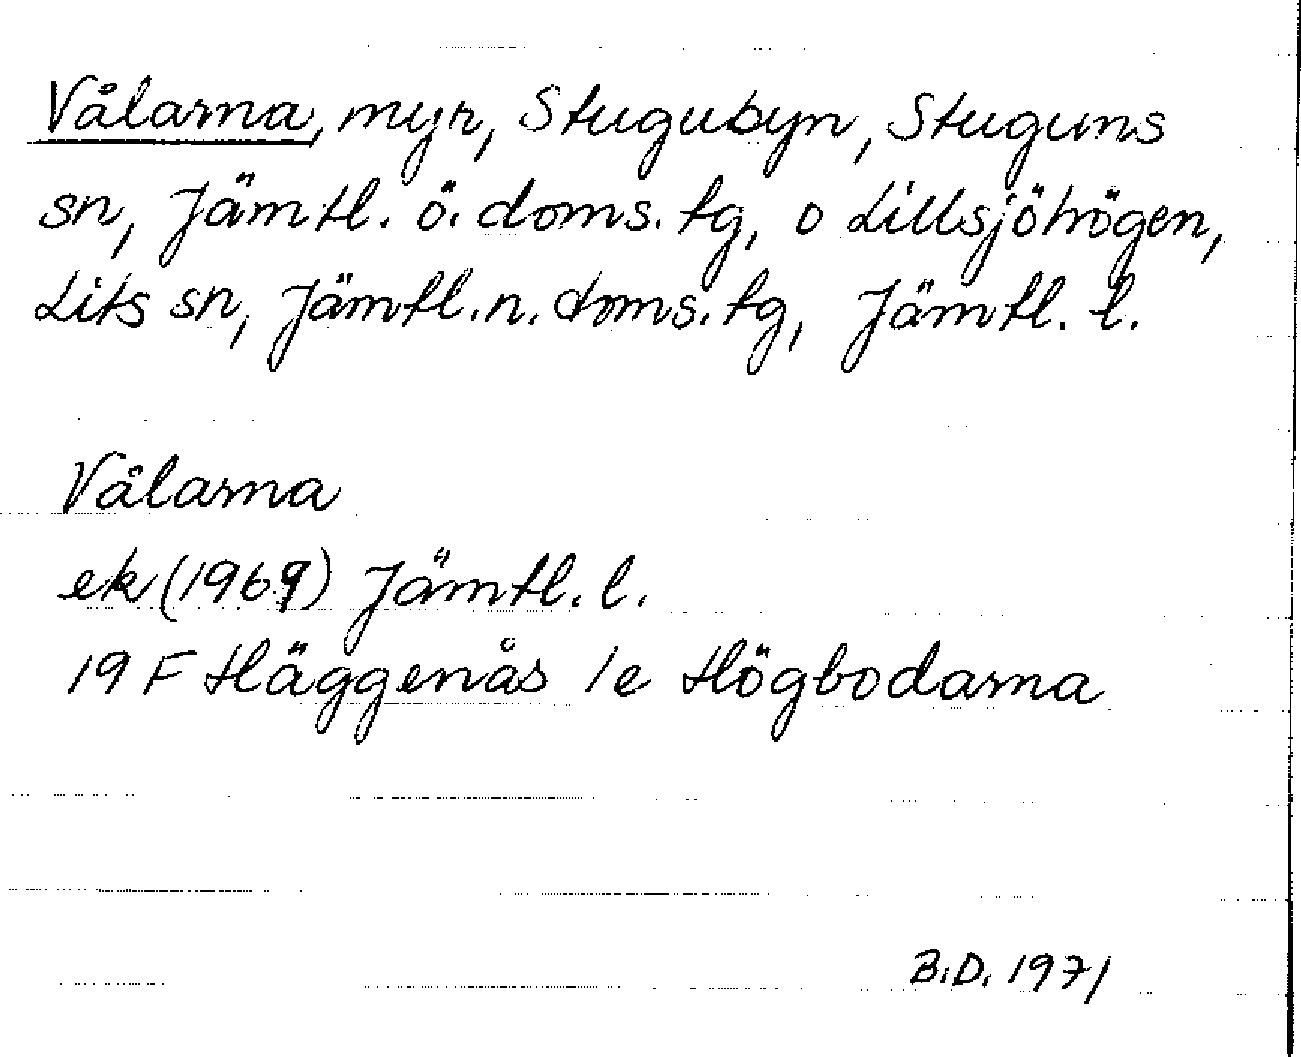 Vålarna, myr, Stugubyn, Stuguns
sn, Jämtl. ö. doms. tg, o Lillsjöhögen,
Lits sn, Jämtl. n. doms. tg, Jämtl. l.
Vålarna
ek (1969) Jämtl. l.
19 F Häggenås 1e Högbodarna
B.D. 1971